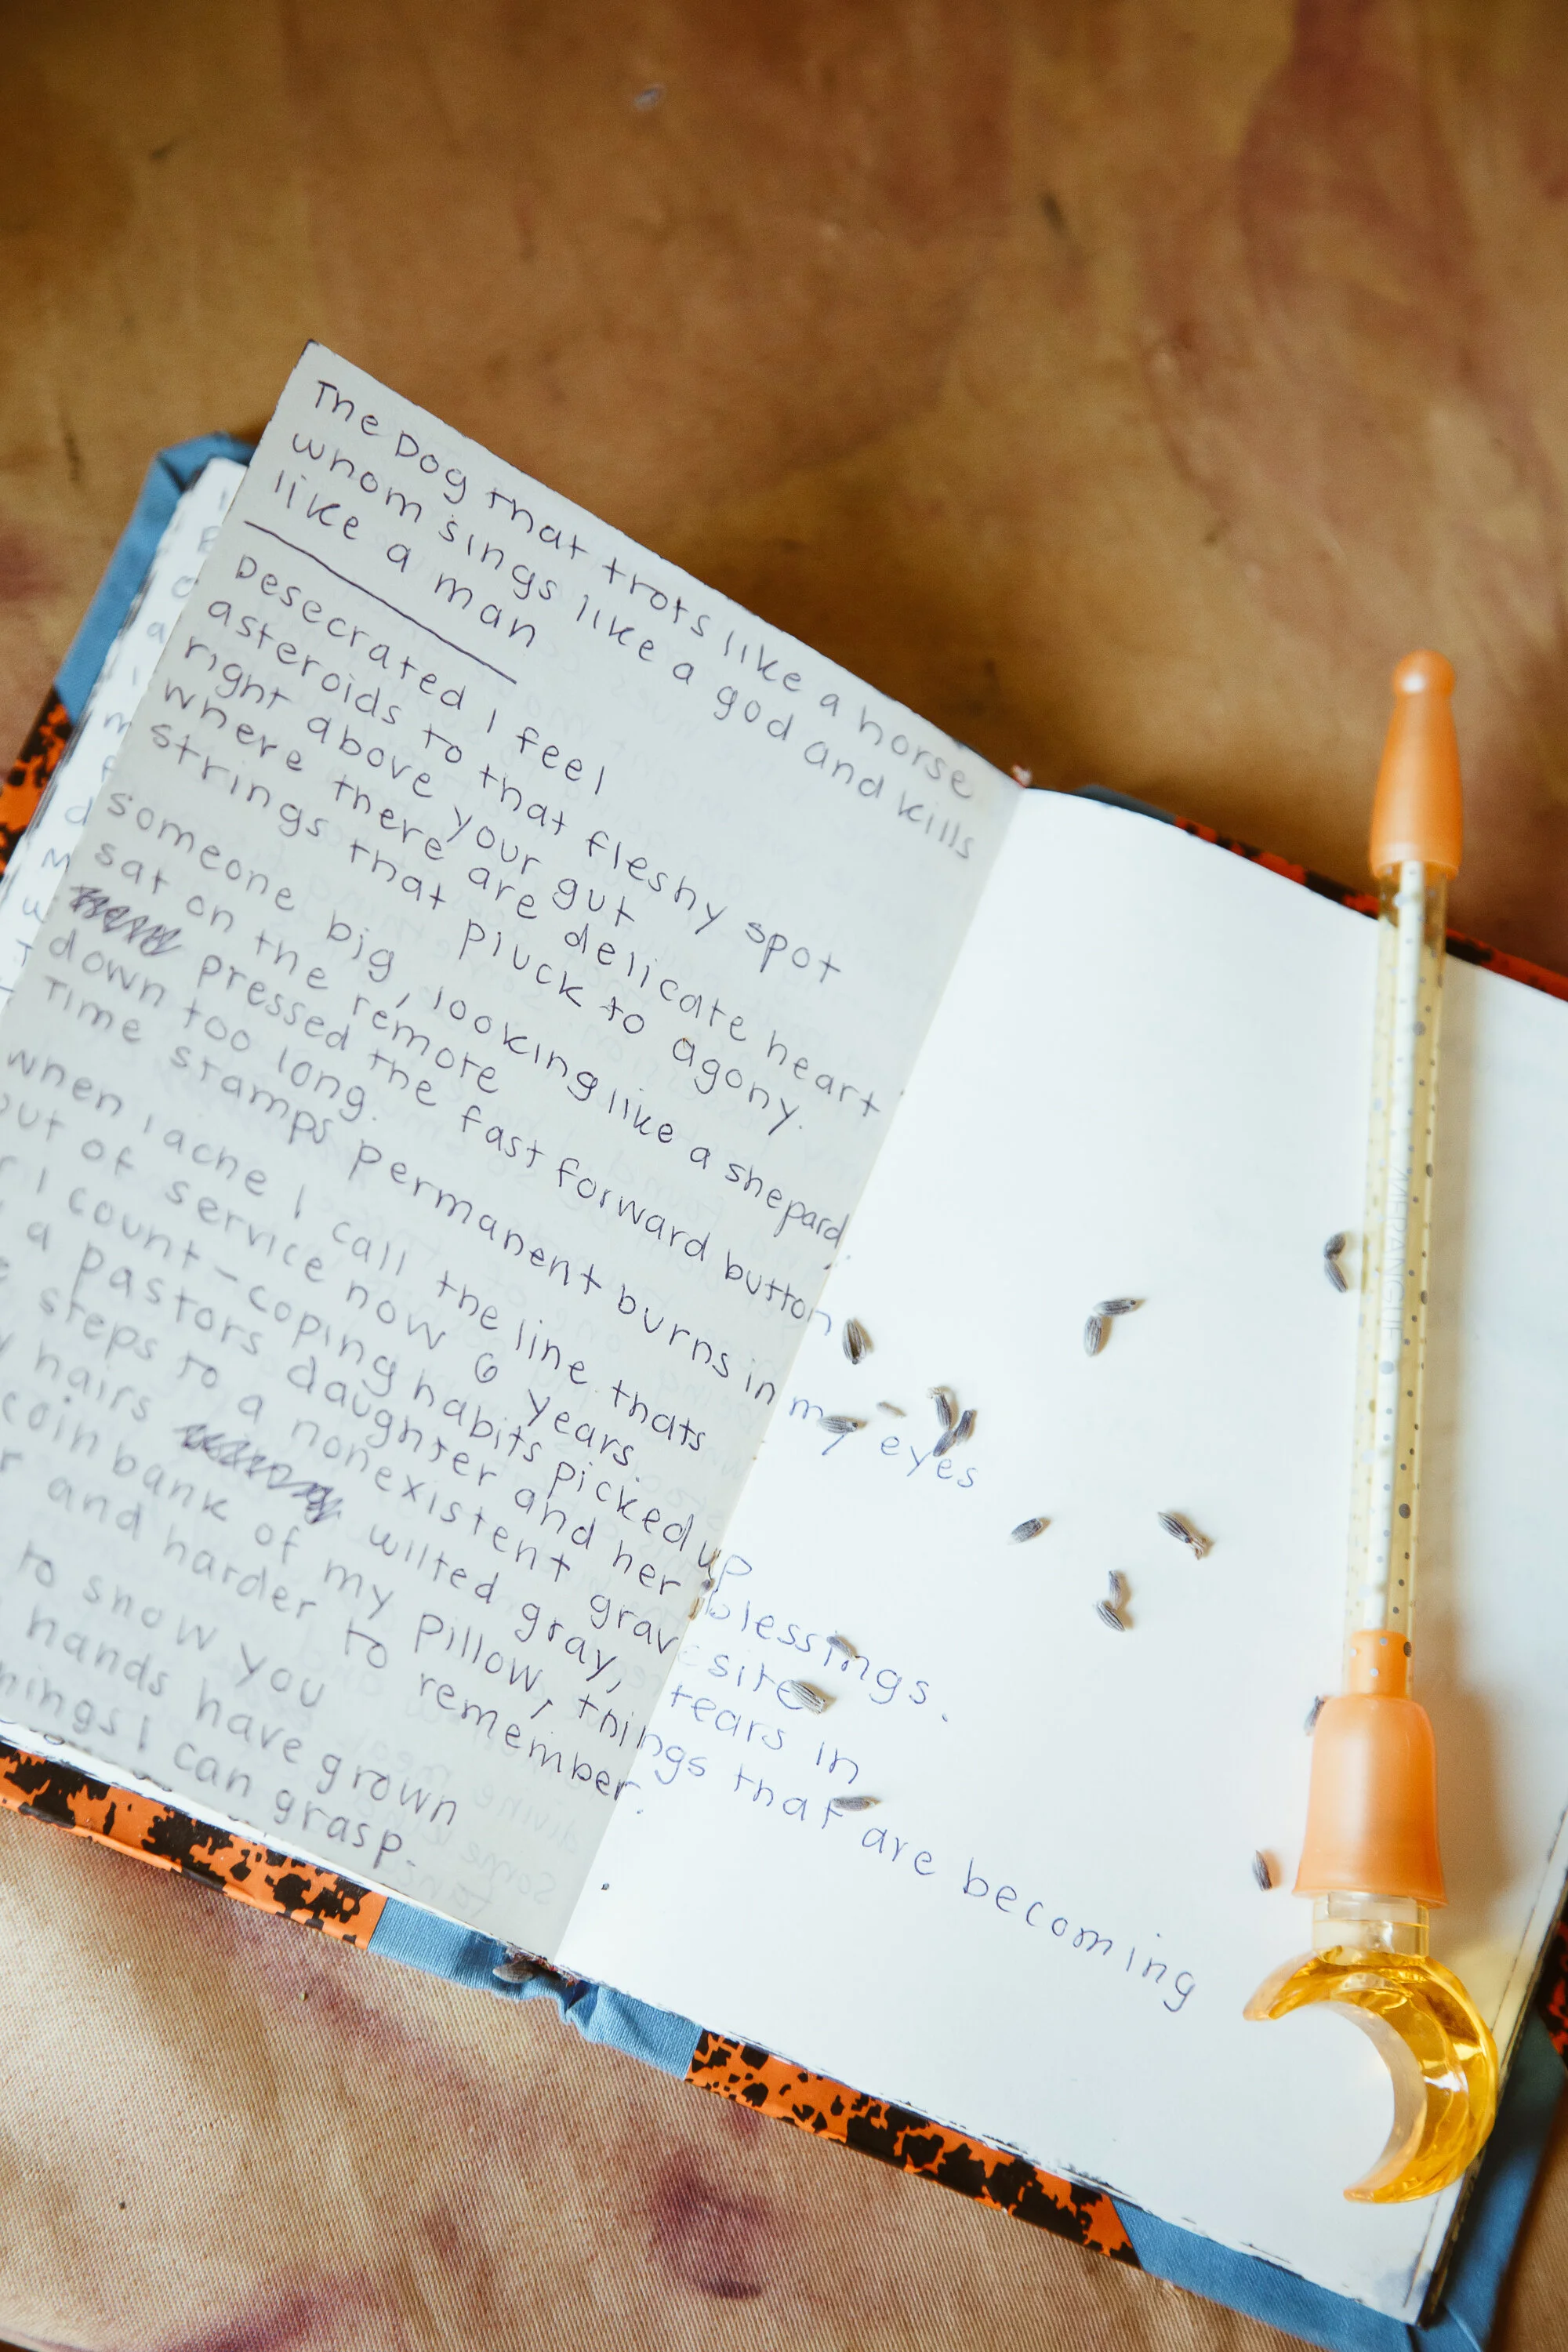 The Dog that trots like a horse
whom sings like a god and kills
like a man
Desecrated I feel
asteroids to that fleshy spot
right above your gut
where there are delicate heart
strings that pluck to agony.
someone big, looking like a shepard,
sat on the remote
pressed the fast forward button
down too long.
Time stamps permanent burns in my eyes
when I ache I call the line thats
out of service now 6 years.
I count-coping habits picked up
a pastors daughter and her blessings.
steps to a nonexistent grave site
hairs wilted gray, tears in
coin bank of my pillow, things that are becoming
and harder to remember.
to show you
hands have grown
things I can grasp.